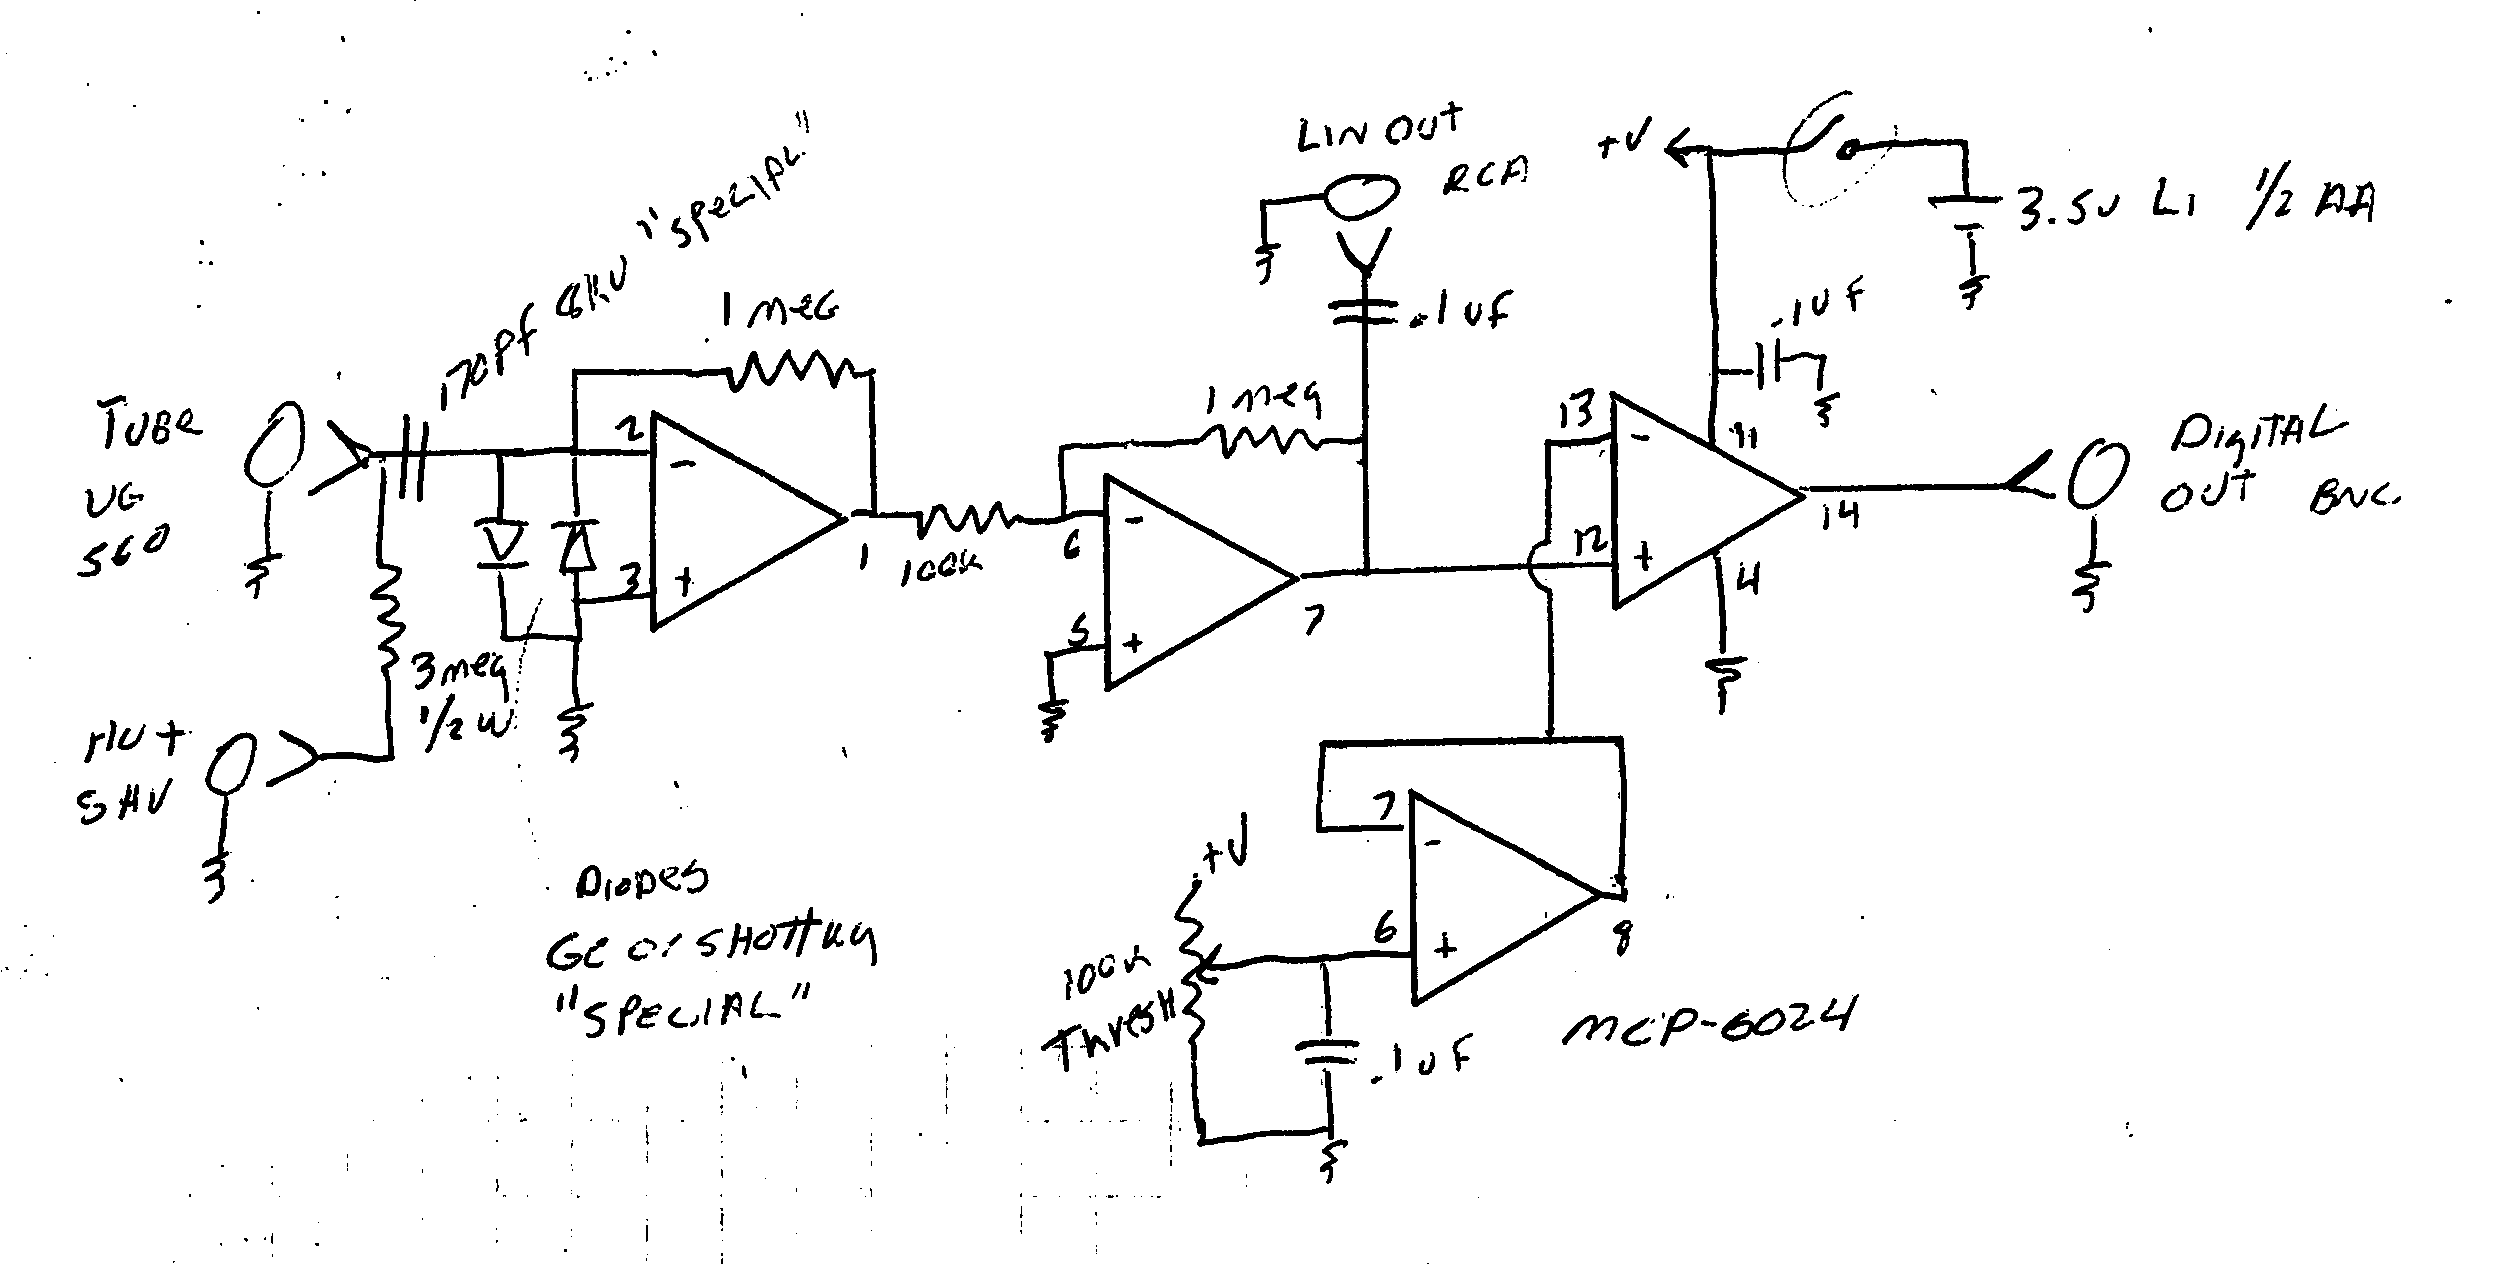 LIN OUT
RCA
+V
3.5V Li 1/2 AA
170Pf 6KV "SPECIAL"
1 meG
.1uF
.1uF
TUBE
UG
560
2
3
1
100K
1 meg
6
5
7
13
12
11
14
4
DigiTAL
OUT BNC
3 meg
1/2 W
HV+
SHV
DIODES
Ge or SHOTTKY
"SPECIAL"
+V
100K
Thresh
7
6
8
.1uF
MCP-6024